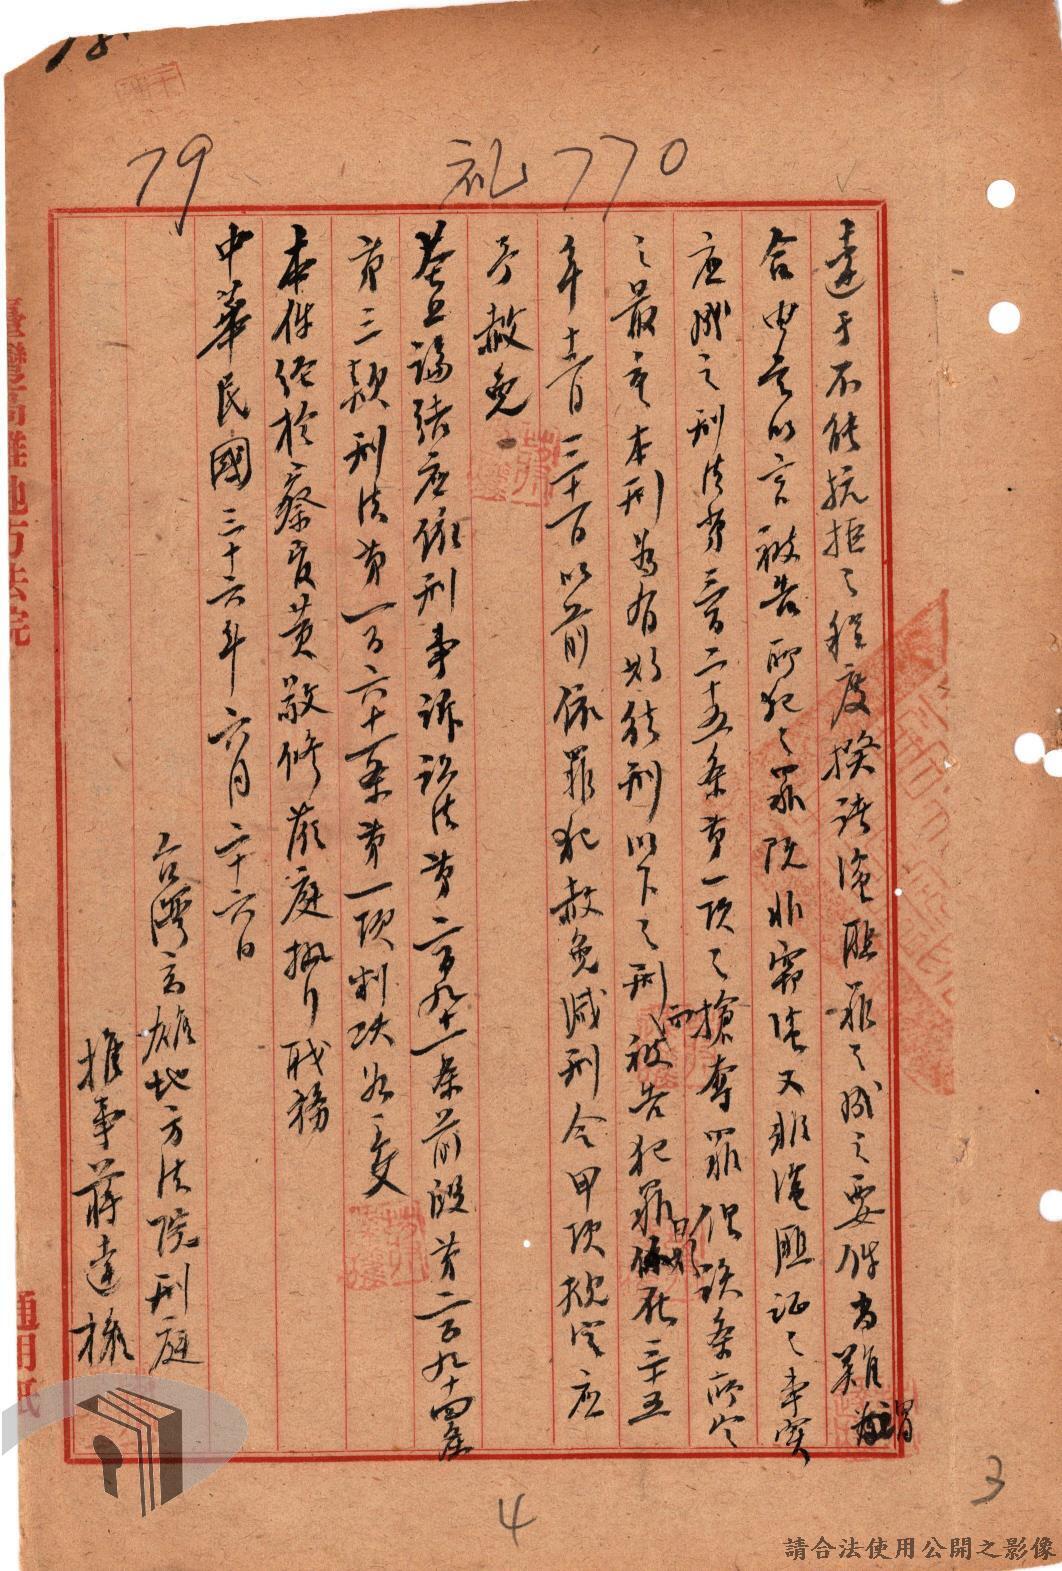 79
770
達于不能抗拒之程度揆諸強盜罪之成立要件尚難謂為
合由是以言被告所犯之罪既非竊盜又非強盜証之事實
應成立刑法第三百二十五条第一項之搶奪罪但該条所定
之最重本刑為有期徒刑以下之刑而被告犯罪日期係在三十五
年十二月三十一日以前依罪犯赦免減刑令甲項規定應
予赦免
基上論結應依刑事訴訟法第二百九十一条前段第二百九十四条
第三款刑法第一百六十一条第一項判決如主文
本件經檢察官黃敬修蒞庭執行職務
中華民國三十六年六月二十六日
台灣高雄地方法院刑庭
推事蔣達樑
臺灣高雄地方法院
通用紙
4
3
請合法使用公開之影像